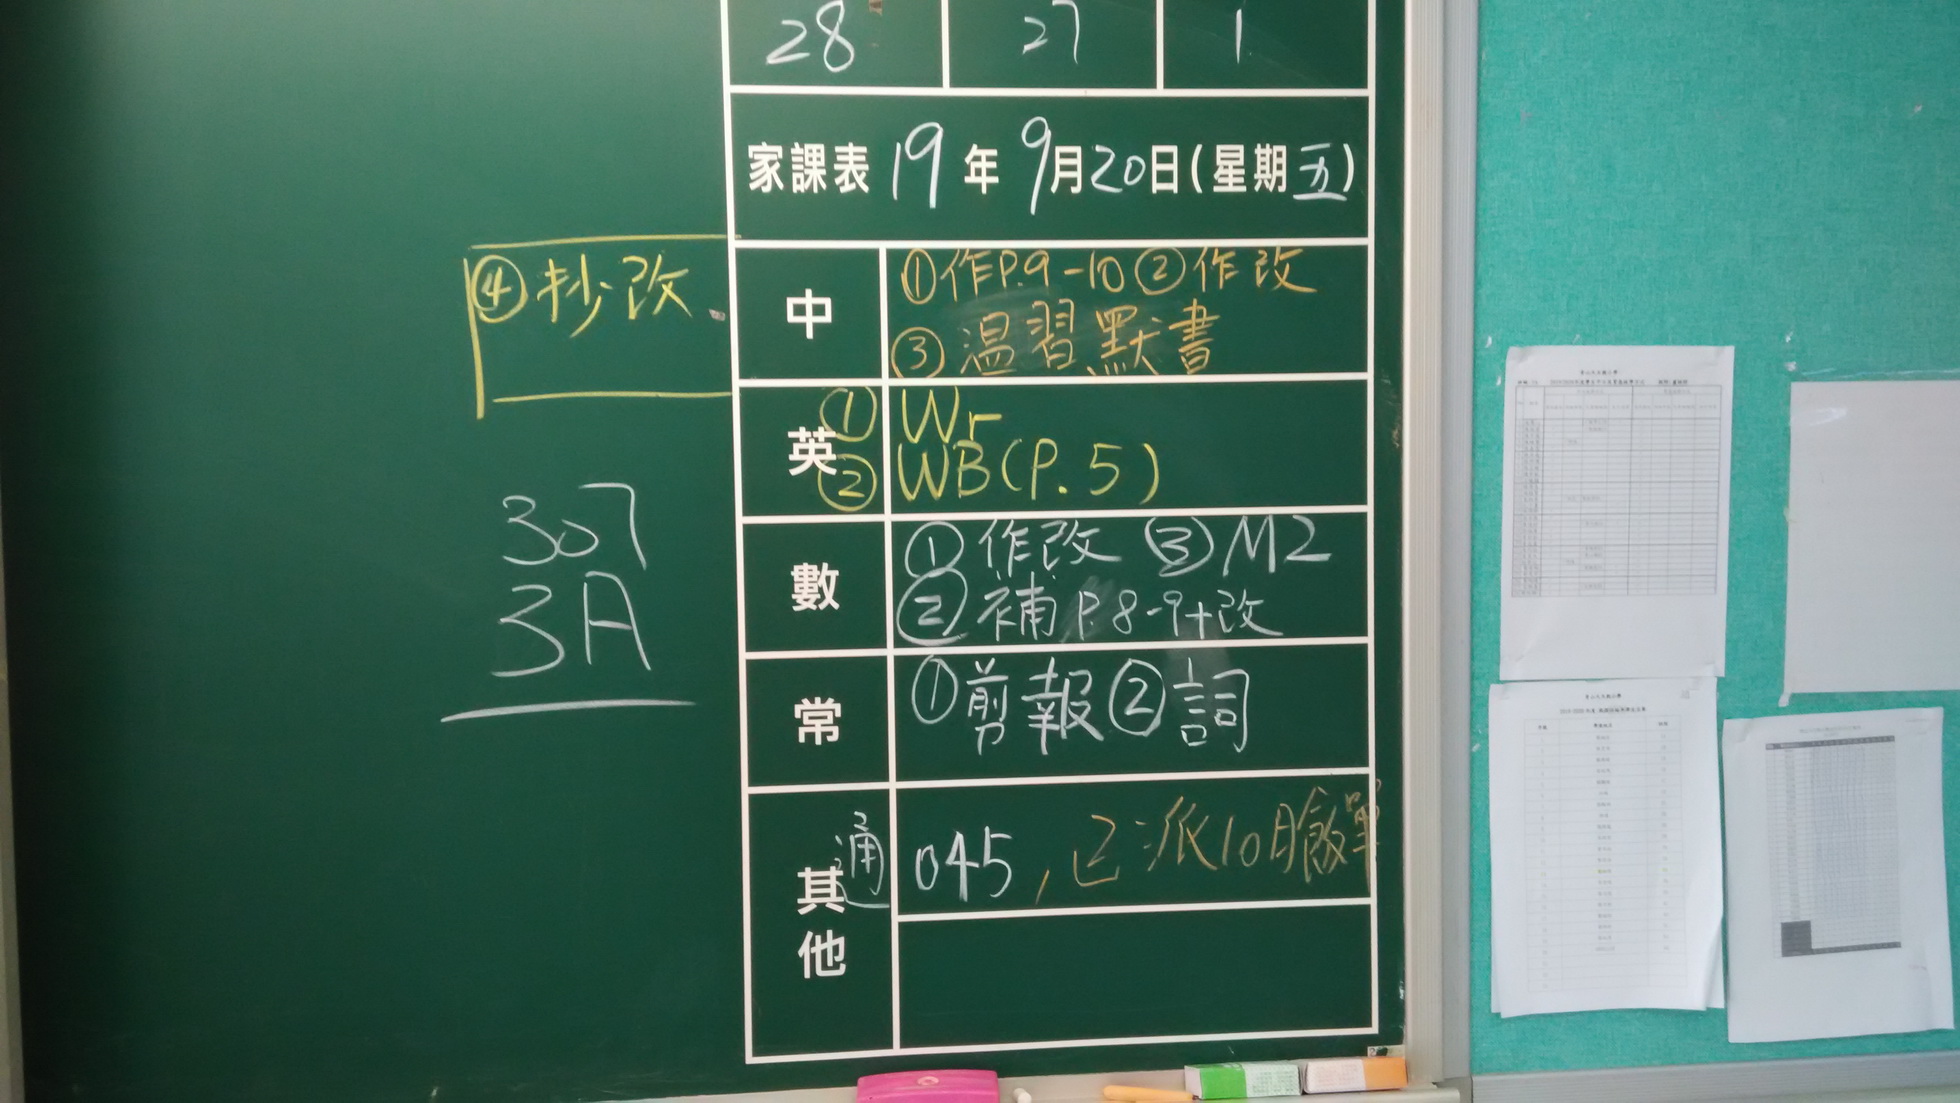 28 27 1
家課表 19年 9月20日(星期五)
④抄改
中 ①作P.9-10 ②作改
③温習默書
英 ① Wr
② WB(P.5)
307
3A
數 ①作改 ③M2
②補P.8-9+改
常 ①剪報②詞
其他 通 045, 已派10月飯單